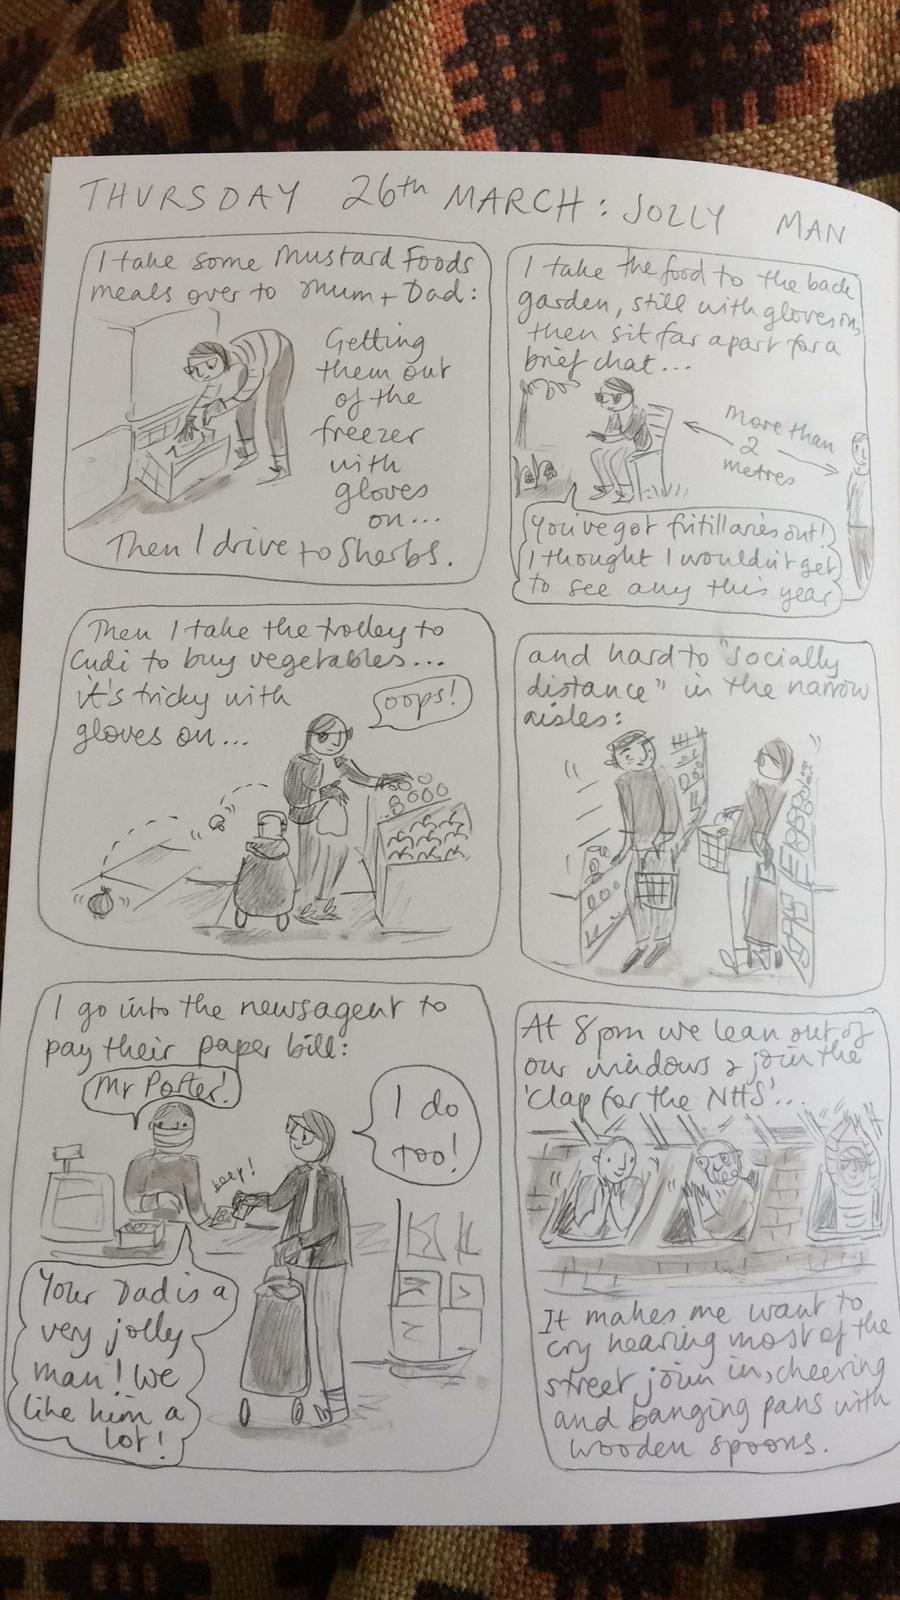 THURSDAY 26th MARCH: JOLLY MAN
I take some Mustard Foods
meals over to Mum + Dad:
Getting
them out
of the
freezer
with
gloves
on...
Then I drive to Sherbs.
I take the food to the back
garden, still with gloves on,
then sit far apart for a
brief chat...
More than
2
metres
You've got fritillaries out!
I thought I wouldn't get
to see any this year
Then I take the trolley to
Cudi to buy vegetables...
it's tricky with
gloves on...
oops!
and hard to "socially
distance" in the narrow
aisles:
I go into the newsagent to
pay their paper bill:
Mr Porter!
beep!
I do
too!
Your Dad is a
very jolly
man! We
like him a
lot!
At 8pm we lean out of
our windows & join the
'Clap for the NHS'...
It makes me want to
cry hearing most of the
street join in, cheering
and banging pans with
wooden spoons.